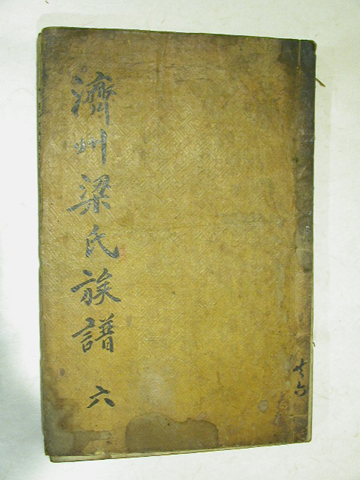 濟州梁氏族譜 六
共六